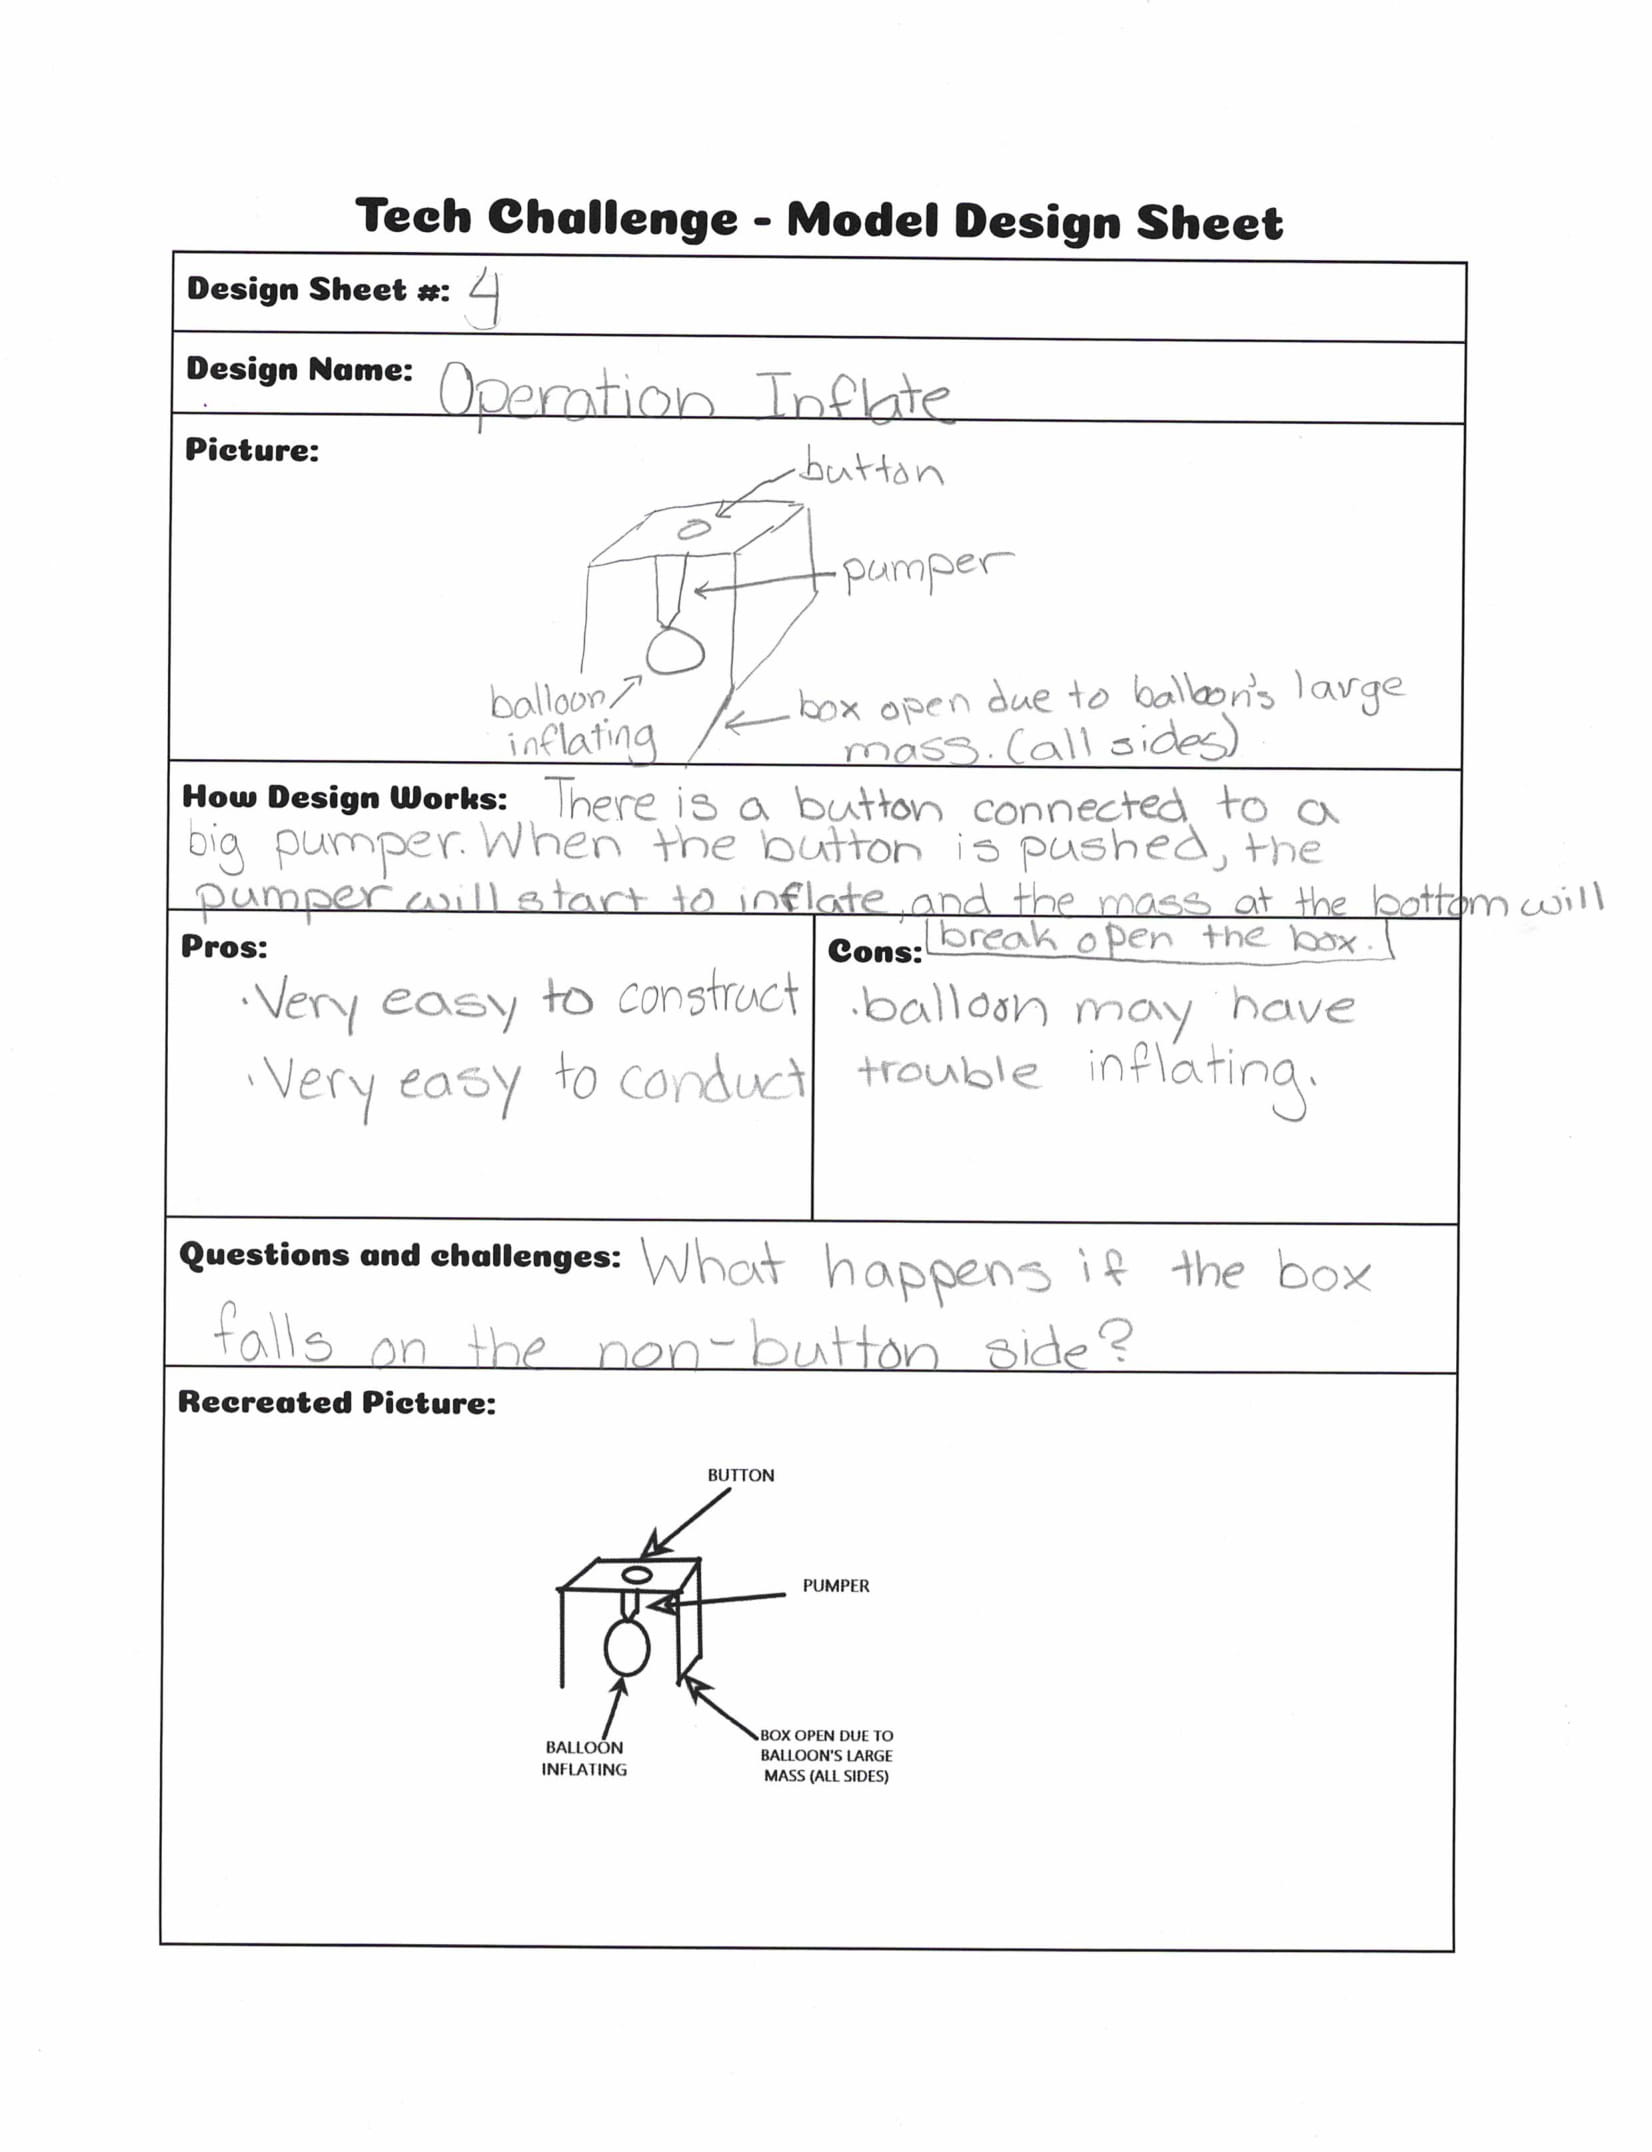 Tech Challenge - Model Design Sheet
Design Sheet #: 4
Design Name: Operation Inflate
Picture:
button
pumper
balloon
inflating
box open due to balloon's large
mass. (all sides)
How Design Works: There is a button connected to a
big pumper. When the button is pushed, the
pumper will start to inflate, and the mass at the bottom will
break open the box.
Pros:
·Very easy to construct
·Very easy to conduct
Cons:
·balloon may have
trouble inflating.
Questions and challenges: What happens if the box
falls on the non-button side?
Recreated Picture:
BUTTON
PUMPER
BALLOON
INFLATING
BOX OPEN DUE TO
BALLOON'S LARGE
MASS (ALL SIDES)